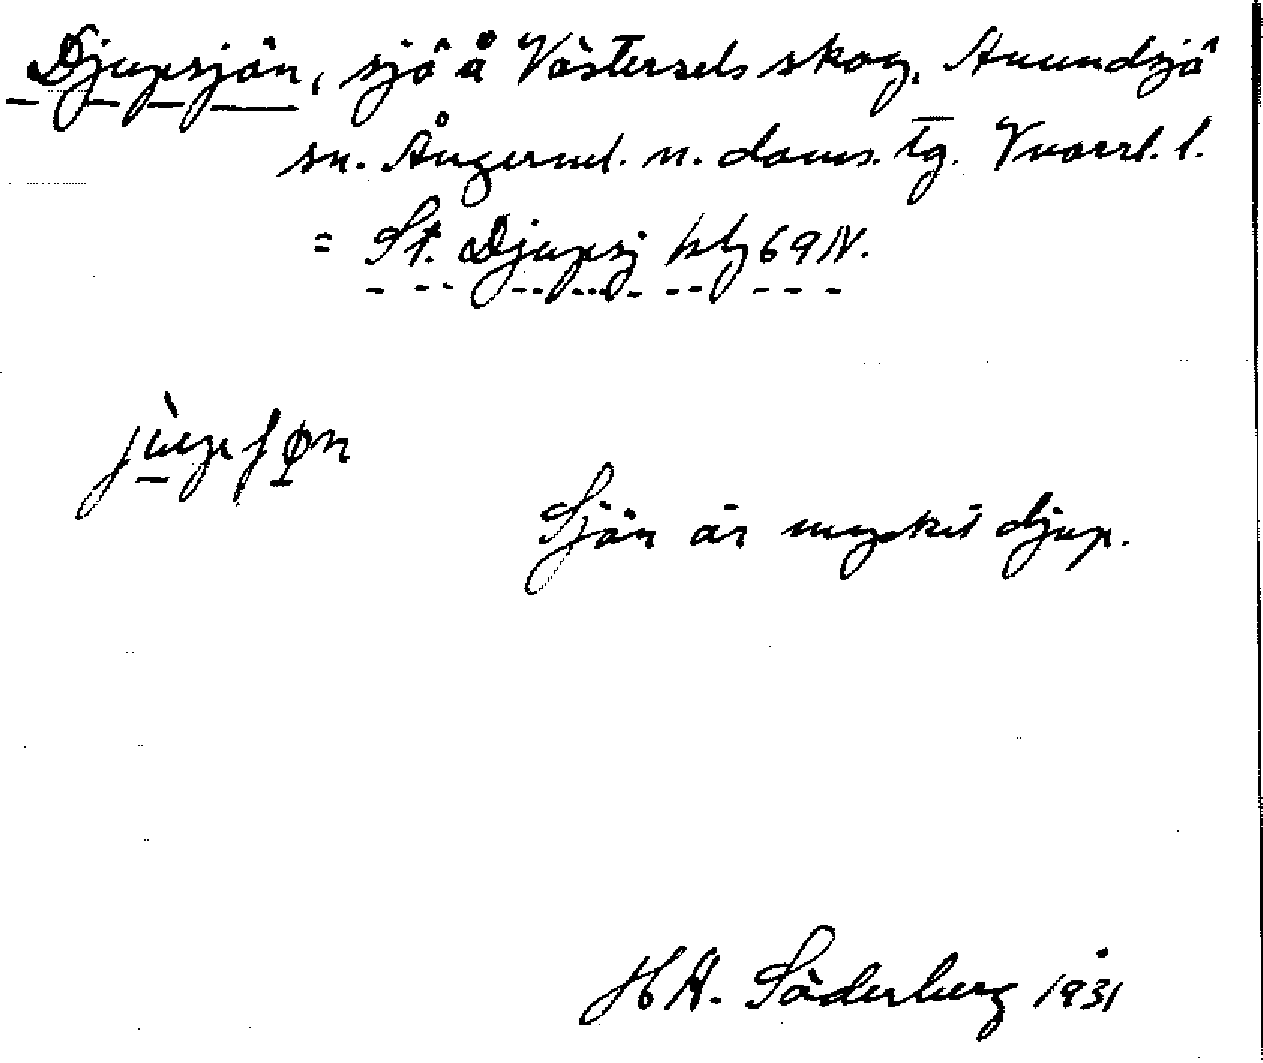 Djupsjön, sjö å Västersels skog, Anundsjö
sn. Ångerml. n. doms. tg. Vvarrl. l.
= St. Djupsj hbj 69 N.
jùpʃøn
Sjön är mycket djup.
H A. Söderberg 1931